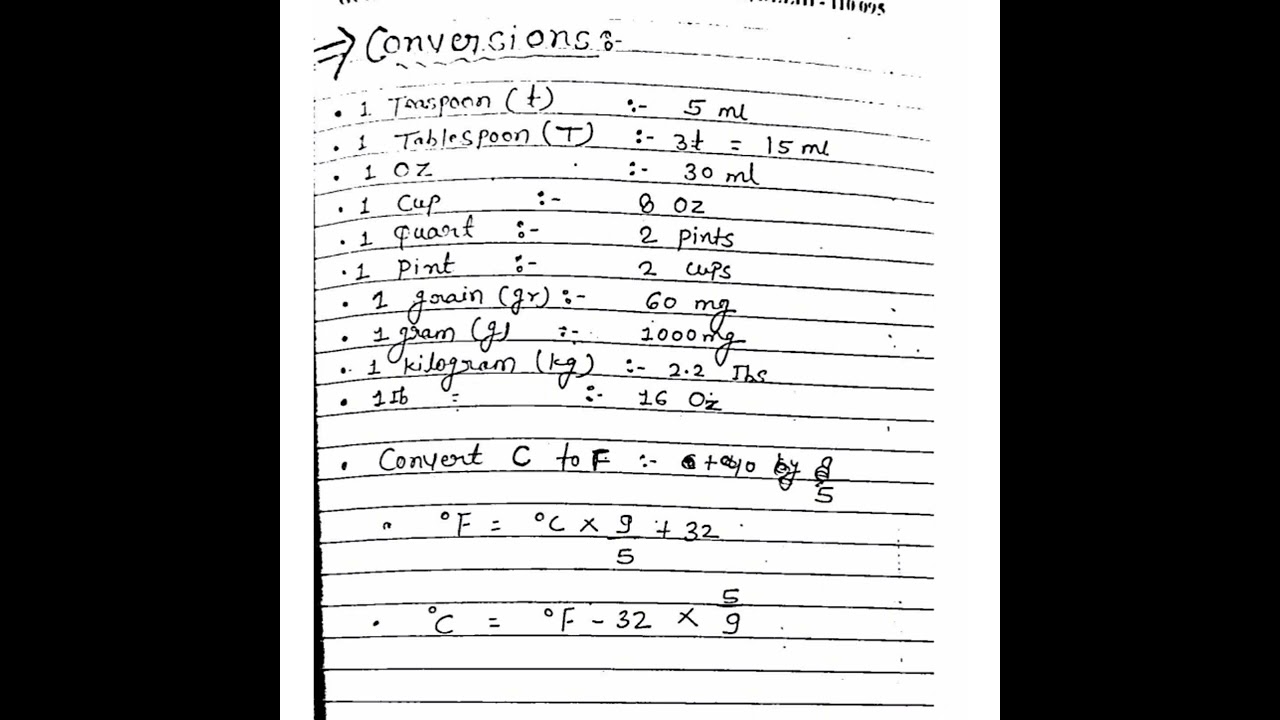 - 110 095
⇒ Conversions :-
• 1 Teaspoon (t) :- 5 ml
• 1 Tablespoon (T) :- 3t = 15 ml
• 1 OZ :- 30 ml
• 1 Cup :- 8 Oz
• 1 quart :- 2 pints
• 1 pint :- 2 cups
• 1 grain (gr) :- 60 mg
• 1 gram (g) :- 1000 mg
• 1 kilogram (kg) :- 2.2 Ibs
• 1 Ib = :- 16 Oz
• Convert C to F :- by 9/5
°F = °C × 9/5 + 32
• °C = °F - 32 × 5/9